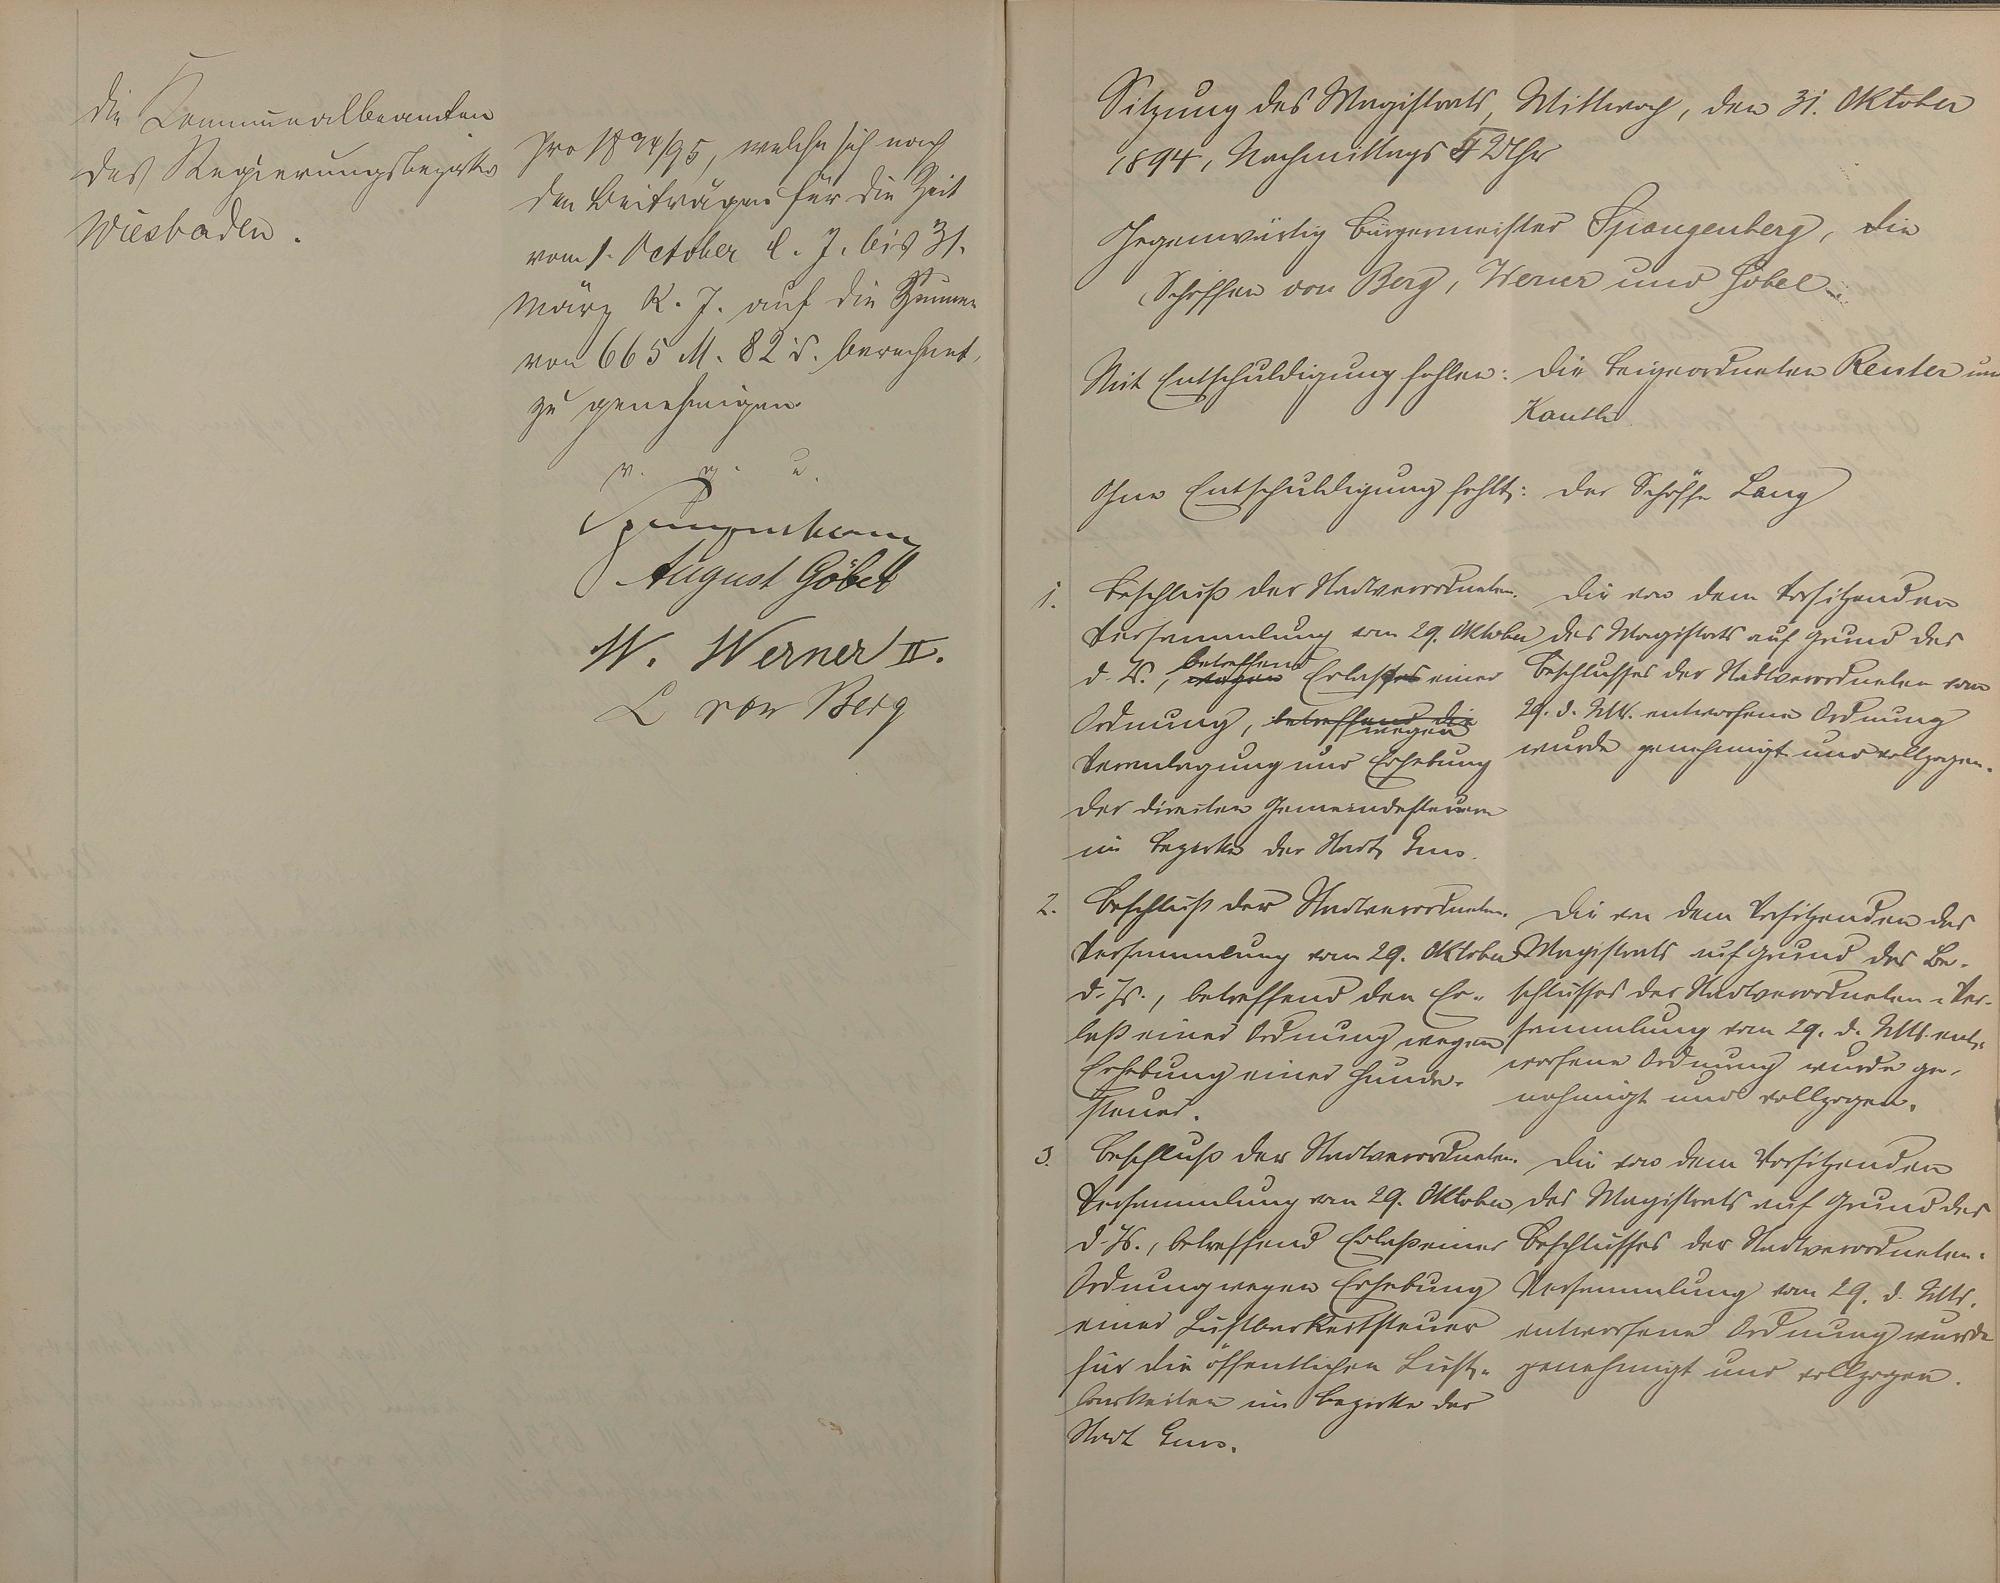 die Communalbeamten
des Regierungsbezirks
Wiesbaden.
pro 1894/95, welche sich nach
den Beiträgen für die Zeit
vom 1. October l. J. bis 31.
März k. J. auf die Summe
von 665 M. 82 d. berechnet,
zu genehmigen
v. g. u.
Spangenberg
August Göbel
W. Werner II.
L von Berg
Sitzung des Magistrats, Mittwoch, den 31. Oktober
1894, Nachmittags 2 Uhr
Gegenwärtig Bürgermeister Spangenberg, die
Schöffen von Berg, Werner und Göbel
Mit Entschuldigung fehlen: die Beigeordneten Reuter und
Kauth
Ohne Entschuldigung fehlt: der Schöffe Lang
1. Beschluß der Stadtverordneten-
Versammlung vom 29. Oktober
d. Js., betreffend Erlaß einer
Ordnung, wegen
Veranlagung und Erhebung
der direkten Gemeindesteuern
im Bezirke der Stadt Ems.
Die von dem Vorsitzenden
des Magistrats auf Grund des
Beschlusses der Stadtverordneten vom
29. d. Mts. entworfene Ordnung
wurde genehmigt und vollzogen.
2. Beschluß der Stadtverordneten-
Versammlung vom 29. Oktober
d. Js., betreffend den Er-
laß einer Ordnung wegen
Erhebung einer Hunde-
steuer.
Die von dem Vorsitzenden des
Magistrats auf Grund des Be-
schlusses der Stadtverordneten-Ver-
sammlung vom 29. d. Mts. ent-
worfene Ordnung wurde ge-
nehmigt und vollzogen.
3. Beschluß der Stadtverordneten-
Versammlung vom 29. Oktober
d. Js., betreffend Erlaß einer
Ordnung wegen Erhebung
einer Lustbarkeitsteuer
für die öffentlichen Lust-
barkeiten im Bezirke der
Stadt Ems.
Die von dem Vorsitzenden
des Magistrats auf Grund des
Beschlusses der Stadtverordneten-
Versammlung vom 29. d. Mts.
entworfene Ordnung wurde
genehmigt und vollzogen.